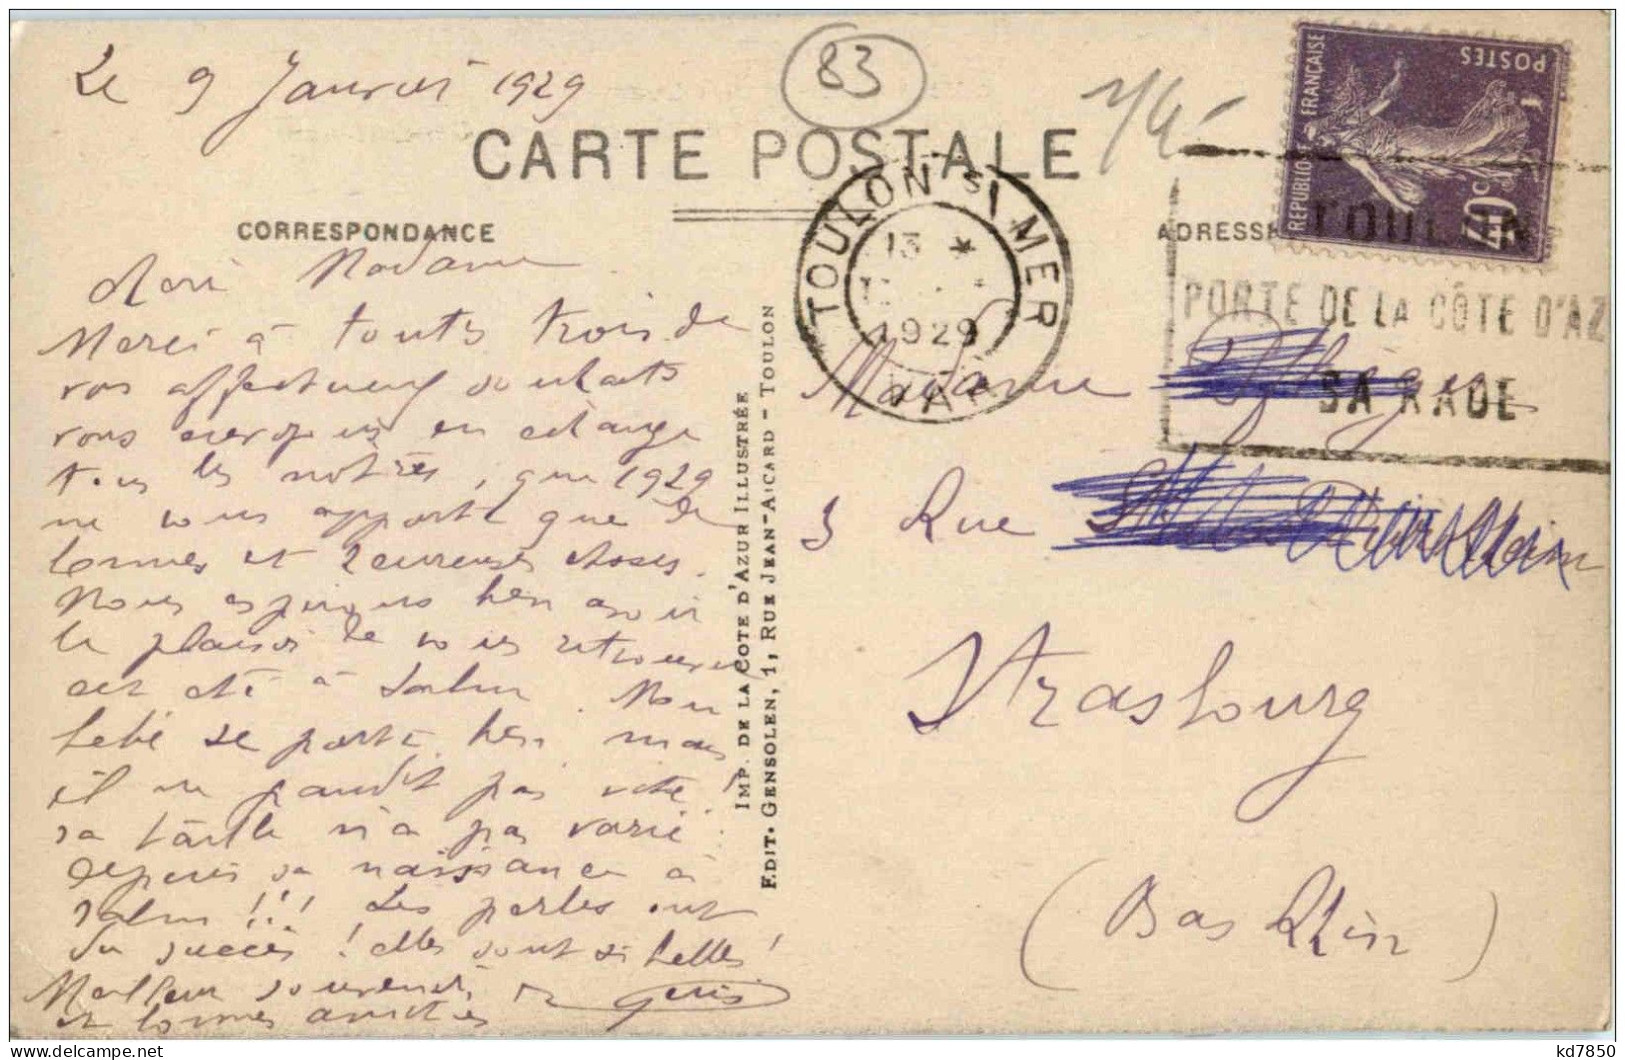 Le 9 Janvier 1929
83
CARTE POSTALE
CORRESPONDANCE
ADRESSE
REPUBLIQUE FRANÇAISE
POSTES
40c
TOULON S/ MER
13 *
1929
VAR
TOULON
PORTE DE LA CÔTE D'AZ
SA RADE
Madame
Merci à toutes trois de
vos affectueux souhaits
vous en échange
tous les nôtres, que 1929
ne vous apporte que de
bonnes et heureuses choses.
Nous espérons bien avoir
le plaisir de vous retrouver
cet été à Salm. Mon
bébé se porte bien mais
il ne grandit pas vite!
sa taille n'a pas varié
depuis sa naissance à
Salm!!! Les perles ont
du succès! elles sont si belles!
Meilleur souvenir
et bonnes amitiés
IMP. DE LA COTE D'AZUR ILLUSTRÉE
EDIT. GENSOLEN, 1, RUE JEAN-AICARD - TOULON
Madame
3 Rue
Strasbourg
(Bas Rhin)
kd7850